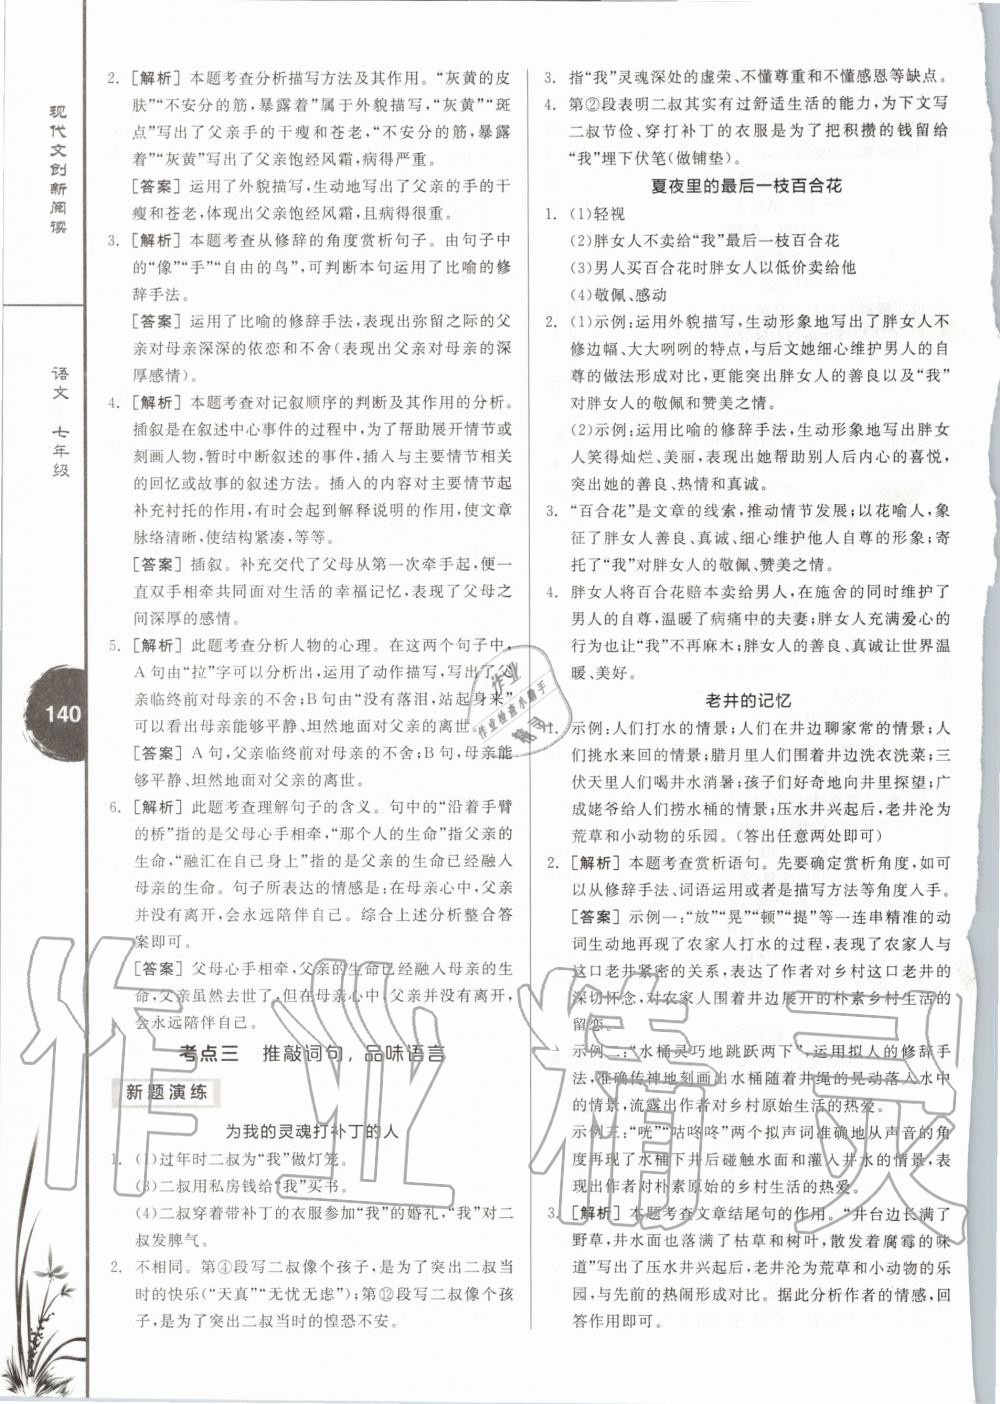 现代文创新阅读
语文 七年级
140
2. [解析] 本题考查分析描写方法及其作用。“灰黄的皮
肤”“不安分的筋，暴露着”属于外貌描写，“灰黄”“斑
点”写出了父亲手的干瘦和苍老，“不安分的筋，暴露
着”“灰黄”写出了父亲饱经风霜，病得严重。
[答案] 运用了外貌描写，生动地写出了父亲的手的干
瘦和苍老，体现出父亲饱经风霜，且病得很重。
3. [解析] 本题考查从修辞的角度赏析句子。由句子中
的“像”“手”“自由的鸟”，可判断本句运用了比喻的修
辞手法。
[答案] 运用了比喻的修辞手法，表现出弥留之际的父
亲对母亲深深的依恋和不舍(表现出父亲对母亲的深
厚感情)。
4. [解析] 本题考查对记叙顺序的判断及其作用的分析。
插叙是在叙述中心事件的过程中，为了帮助展开情节或
刻画人物，暂时中断叙述的事件，插入与主要情节相关
的回忆或故事的叙述方法。插入的内容对主要情节起
补充衬托的作用，有时会起到解释说明的作用，使文章
脉络清晰，使结构紧凑，等等。
[答案] 插叙。补充交代了父母从第一次牵手起，便一
直双手相牵共同面对生活的幸福记忆，表现了父母之
间深厚的感情。
5. [解析] 此题考查分析人物的心理。在这两个句子中，
A句由“拉”字可以分析出，运用了动作描写，写出了父
亲临终前对母亲的不舍；B句由“没有落泪，站起身来”
可以看出母亲能够平静、坦然地面对父亲的离世
[答案] A句，父亲临终前对母亲的不舍；B句，母亲能
够平静、坦然地面对父亲的离世。
6. [解析] 此题考查理解句子的含义。句中的“沿着手臂
的桥”指的是父母心手相牵，“那个人的生命”指父亲的
生命，“融汇在自己身上”指的是父亲的生命已经融入
母亲的生命。句子所表达的情感是：在母亲心中，父亲
并没有离开，会永远陪伴自己。综合上述分析整合答
案即可。
[答案] 父母心手相牵，父亲的生命已经融入母亲的生
命，父亲虽然去世了，但在母亲心中，父亲并没有离开，
会永远陪伴自己。
考点三 推敲词句，品味语言
新题演练
为我的灵魂打补丁的人
1. (1)过年时二叔为“我”做灯笼。
(3)二叔用私房钱给“我”买书。
(4)二叔穿着带补丁的衣服参加“我”的婚礼，“我”对二
叔发脾气。
2. 不相同。第④段写二叔像个孩子，是为了突出二叔当
时的快乐(“天真”“无忧无虑”)；第⑫段写二叔像个孩
子，是为了突出二叔当时的惶恐不安。
3. 指“我”灵魂深处的虚荣、不懂尊重和不懂感恩等缺点。
4. 第②段表明二叔其实有过舒适生活的能力，为下文写
二叔节俭、穿打补丁的衣服是为了把积攒的钱留给
“我”埋下伏笔(做铺垫)。
夏夜里的最后一枝百合花
1. (1)轻视
(2)胖女人不卖给“我”最后一枝百合花
(3)男人买百合花时胖女人以低价卖给他
(4)敬佩、感动
2. (1)示例：运用外貌描写，生动形象地写出了胖女人不
修边幅、大大咧咧的特点，与后文她细心维护男人的自
尊的做法形成对比，更能突出胖女人的善良以及“我”
对胖女人的敬佩和赞美之情。
(2)示例：运用比喻的修辞手法，生动形象地写出胖女
人笑得灿烂、美丽，表现了她帮助别人后内心的喜悦，
突出她的善良、热情和真诚。
3. “百合花”是文章的线索，推动情节发展；以花喻人，象
征了胖女人善良、真诚、细心维护他人自尊的形象；寄
托了“我”对胖女人的敬佩、赞美之情。
4. 胖女人将百合花赔本卖给男人，在施舍的同时维护了
男人的自尊，温暖了病痛中的夫妻；胖女人充满爱心的
行为也让“我”不再麻木；胖女人的善良、真诚让世界温
暖、美好。
老井的记忆
1. 示例：人们打水的情景；人们在井边聊家常的情景；人
们挑水来回的情景；腊月里人们在井边洗衣洗菜；三
伏天里人们喝井水消暑；孩子们好奇地向井里探望；广
成姥爷给人们捞水桶的情景；压水井兴起后，老井沦为
荒草和小动物的乐园。(答出任意两处即可)
2. [解析] 本题考查赏析语句。先要确定赏析角度，如可
以从修辞手法、词语运用或者是描写方法等角度入手。
[答案] 示例一：“放”“晃”“顿”“提”等一连串精准的动
词生动地再现了农家人打水的过程，表现了农家人与
这口老井的亲密的关系，表达了作者对乡村这口老井的
深切怀念，对农家人围着井边展开的朴素乡村生活的
留恋。
示例二：“水桶灵巧地跳跃两下”，运用拟人的修辞手
法，准确传神地刻画出水桶随着井绳的晃动落入水中
的情景，流露出作者对乡村原始生活的热爱。
示例三：“咣”“咕咚咚”两个拟声词准确地从声音的角
度表现了水桶下井后碰触水面和灌入井水的情景，表
现出作者对朴素原始的乡村生活的热爱。
3. [解析] 本题考查文章结尾句的作用。“井台边长满了
野草，井里面也落满了枯草和树叶，散发着腐霉的味
道”写出了压水井兴起后，老井成了杂草和小动物的乐
园，与先前的热闹形成对比。据此分析作者的情感，回
答作用即可。
作业精灵
作业
作业检查小助手
精灵